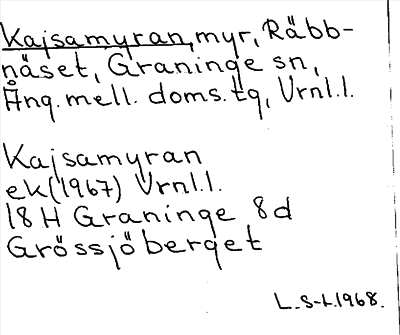 Kajsamyran, myr, Räbb-
näset, Graninge sn,
Ång. mell. doms. tg, Vrnl.l.
Kajsamyran
ek(1967) Vrnl.l.
18H Graninge 8d
Grössjöberget
L.S-t.1968.